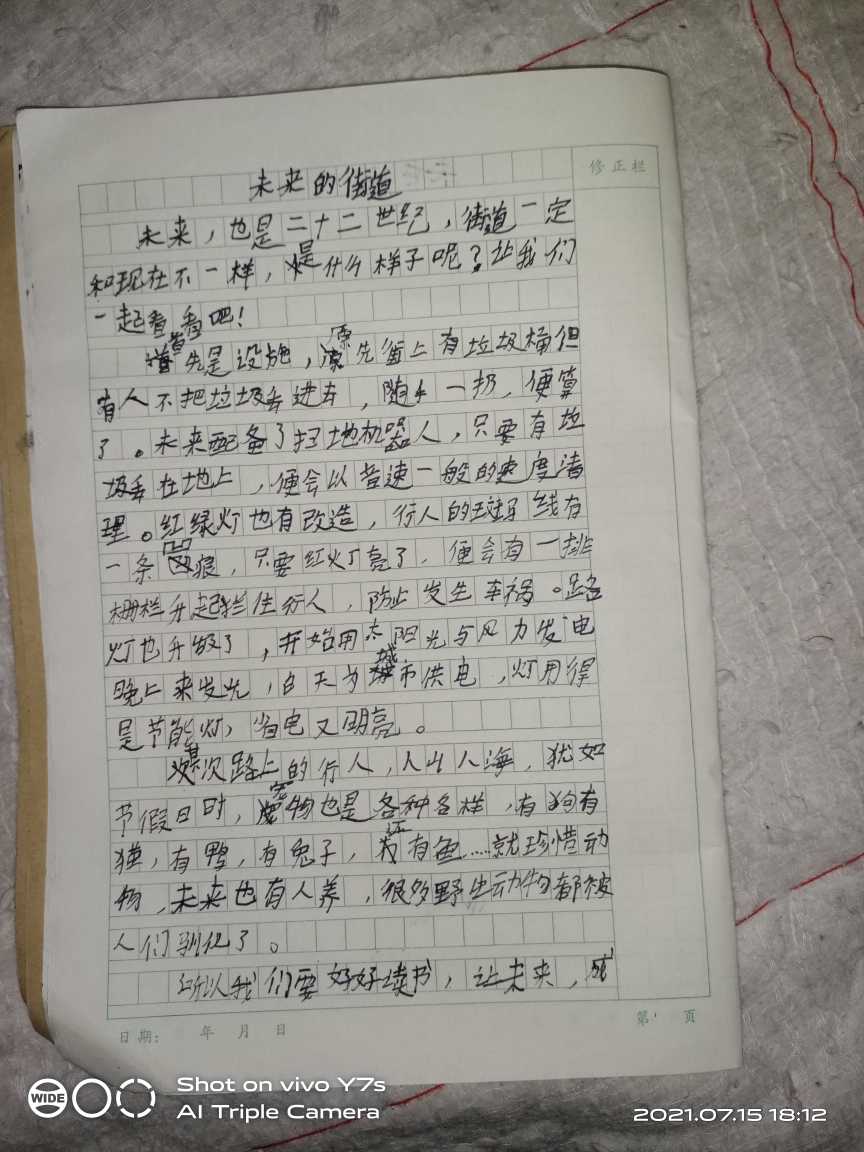 修正栏
未来的街道
未来，也是二十二世纪，街道一定
和现在不一样，是什么样子呢？让我们
一起看看吧！
首先是设施，原先街上有垃圾桶但
有人不把垃圾丢进去，随手一扔，便算
了。未来配备了扫地机器人，只要有垃
圾丢在地上，便会以音速一般的速度清
理。红绿灯也有改造，行人的斑马线有
一条凹痕，只要红灯亮了，便会有一排
栅栏升起拦住行人，防止发生车祸。路
灯也升级了，开始用太阳光与风力发电
晚上来发光，白天为城市供电，灯用得
是节能灯，省电又明亮。
其次路上的行人，人山人海，犹如
节假日时，宠物也是各种各样，有狗有
猫，有鸭，有兔子，还有鱼……就珍惜动
物，未来也有人养，很多野生动物都被
人们驯化了。
所以我们要好好读书，让未来，成
日期： 年 月 日
第 页
WIDE
Shot on vivo Y7s
AI Triple Camera
2021.07.15 18:12